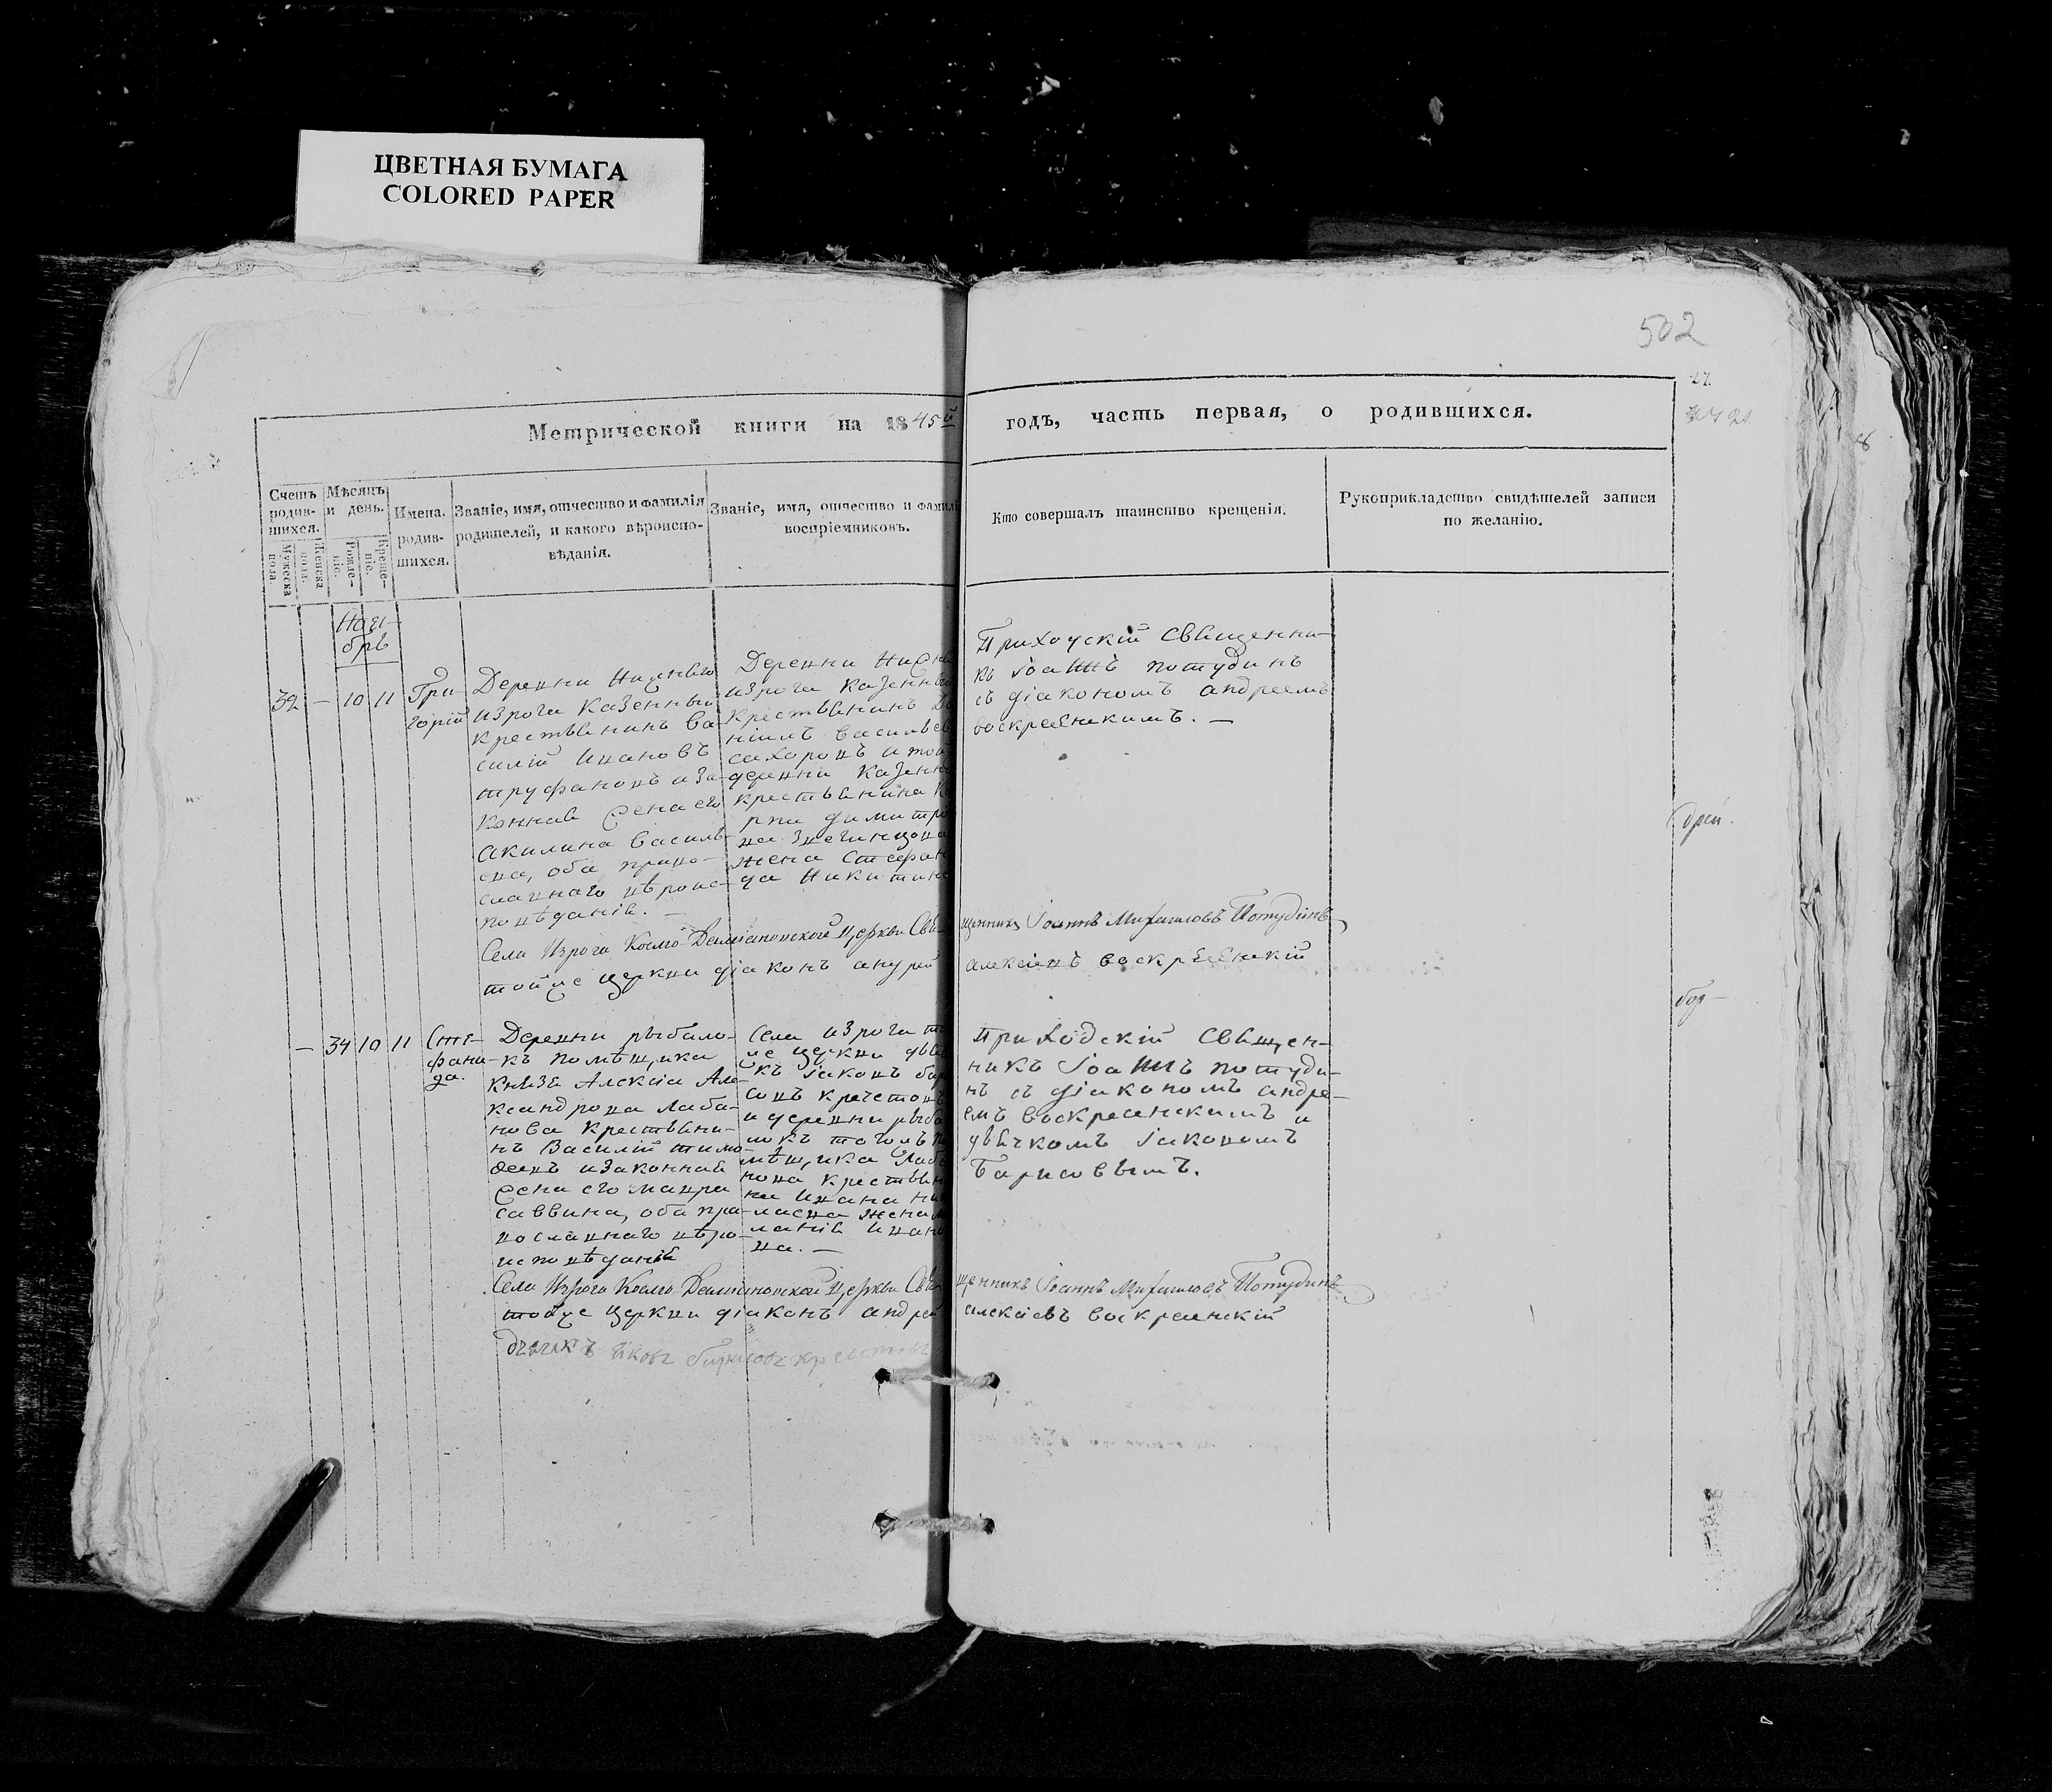 ЦВЕТНАЯ БУМАГА
COLORED PAPER
502
27.
Метрической книги на 1845й
годъ, часть первая, о родившихся.
Счетъ родив-шихся.
Мужеска пола
Женска пола.
Мѣсяцъ и день.
Рожде-ніе.
Креще-ніе.
Имена родив-шихся.
Званіе, имя, отчество и фамилія
родителей, и какого вѣроиспо-
вѣданія.
Званіе, имя, отчество и фамилі
воспріемниковъ.
Кто совершалъ таинство крещенія.
Рукоприкладство свидѣтелей записи
по желанію.
Ноя-
брь
32 — 10 11
Гри
горій
Деревни Нижняго
изрога казенный
крестьянинъ Ва-
силій Ивановъ
труфановъ и за-
конная жена его
Акилина Василь-
ева, оба право-
славнаго вѣроис-
повѣданія. —
Деревни Нижня
изрога казенны
крестьянинъ Да
ніилъ васильев
сахоровъ и той
деревни казенна
крестьянина
димитрі
жена Стефани
да Никитина
Приходскій Священни-
къ Іоаннъ потудинъ
съ діакономъ андреемъ
воскресенскимъ. —
Села Изрога Космо-Даміановской Церкви Свя
щенникъ Іоаннъ Михаиловъ Потудинъ
тойже церкви діаконъ андрей
алексіевъ воскресенскій
— 34 10 11
Сте-
фани-
да.
Деревни рыбало-
къ помѣщика
князя Алексія Але-
ксандрова Лаба-
нова крестьяни-
нъ Василій тимо-
ѳеевъ и законная
жена его мавра
саввина, оба пра-
вославнаго вѣро-
исповѣданія
Села изрога то
же церкви дья
къ іаковъ бар
совъ крестовъ
и деревни рыба
локъ тогожъ по
мѣщика Лаба
нова крестьяни
на Ивана ни
лаева жена
ланія Ивано
ва. —
Приходскій Священ-
никъ Іоаннъ потуди-
нъ съ діакономъ андре-
емъ воскресенскимъ и
дьячкомъ іаковомъ
барисовымъ.
Села Изрога Космо-Даміановской Церкви Свя
щенникъ Іоаннъ Михаиловъ Потудинъ
тойже церкви діаконъ андрей
алексіевъ воскресенскій
дьячекъ іаковъ барисовъ крестовъ